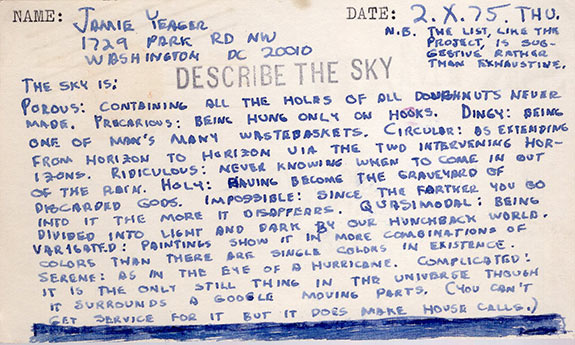 NAME: JAMIE YEAGER DATE: 2.X.75. THU.
1729 PARK RD NW
WASHINGTON DC 20010
N.B. THE LIST, LIKE THE
PROJECT, IS SUG-
GESTIVE RATHER
THAN EXHAUSTIVE.
DESCRIBE THE SKY
THE SKY IS:
POROUS: CONTAINING ALL THE HOLES OF ALL DOUGHNUTS NEVER
MADE. PRECARIOUS: BEING HUNG ONLY ON HOOKS. DINGY: BEING
ONE OF MAN'S MANY WASTEBASKETS. CIRCULAR: AS EXTENDING
FROM HORIZON TO HORIZON VIA THE TWO INTERVENING HOR-
IZONS. RIDICULOUS: NEVER KNOWING WHEN TO COME IN OUT
OF THE RAIN. HOLY: HAVING BECOME THE GRAVEYARD OF
DISCARDED GODS. IMPOSSIBLE: SINCE THE FARTHER YOU GO
INTO IT THE MORE IT DISAPPEARS. QUASIMODAL: BEING
DIVIDED INTO LIGHT AND DARK BY OUR HUNCHBACK WORLD.
VARIGATED: PAINTINGS SHOW IT IN MORE COMBINATIONS OF
COLORS THAN THERE ARE SINGLE COLORS IN EXISTENCE.
SERENE: AS IN THE EYE OF A HURRICANE. COMPLICATED:
IT IS THE ONLY STILL THING IN THE UNIVERSE THOUGH
IT SURROUNDS A GOOGLE MOVING PARTS. (YOU CAN'T
GET SERVICE FOR IT BUT IT DOES MAKE HOUSE CALLS.)